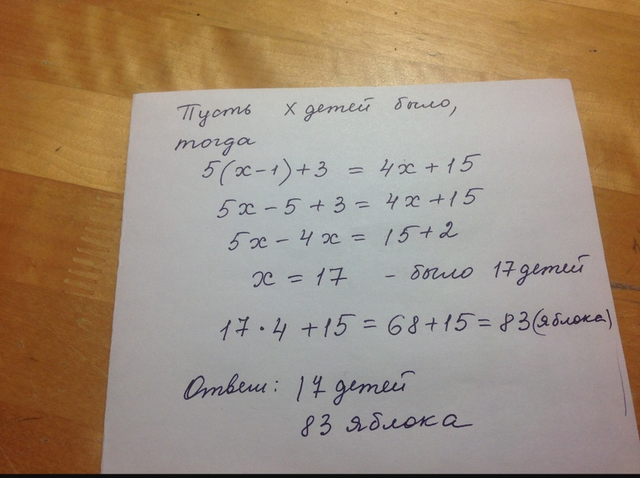 Пусть х детей было,
тогда
5(х-1)+3 = 4х+15
5х-5+3 = 4х+15
5х-4х = 15+2
х = 17 - было 17 детей
17·4 +15 = 68+15 = 83(яблока)
Ответ: 17 детей
83 яблока